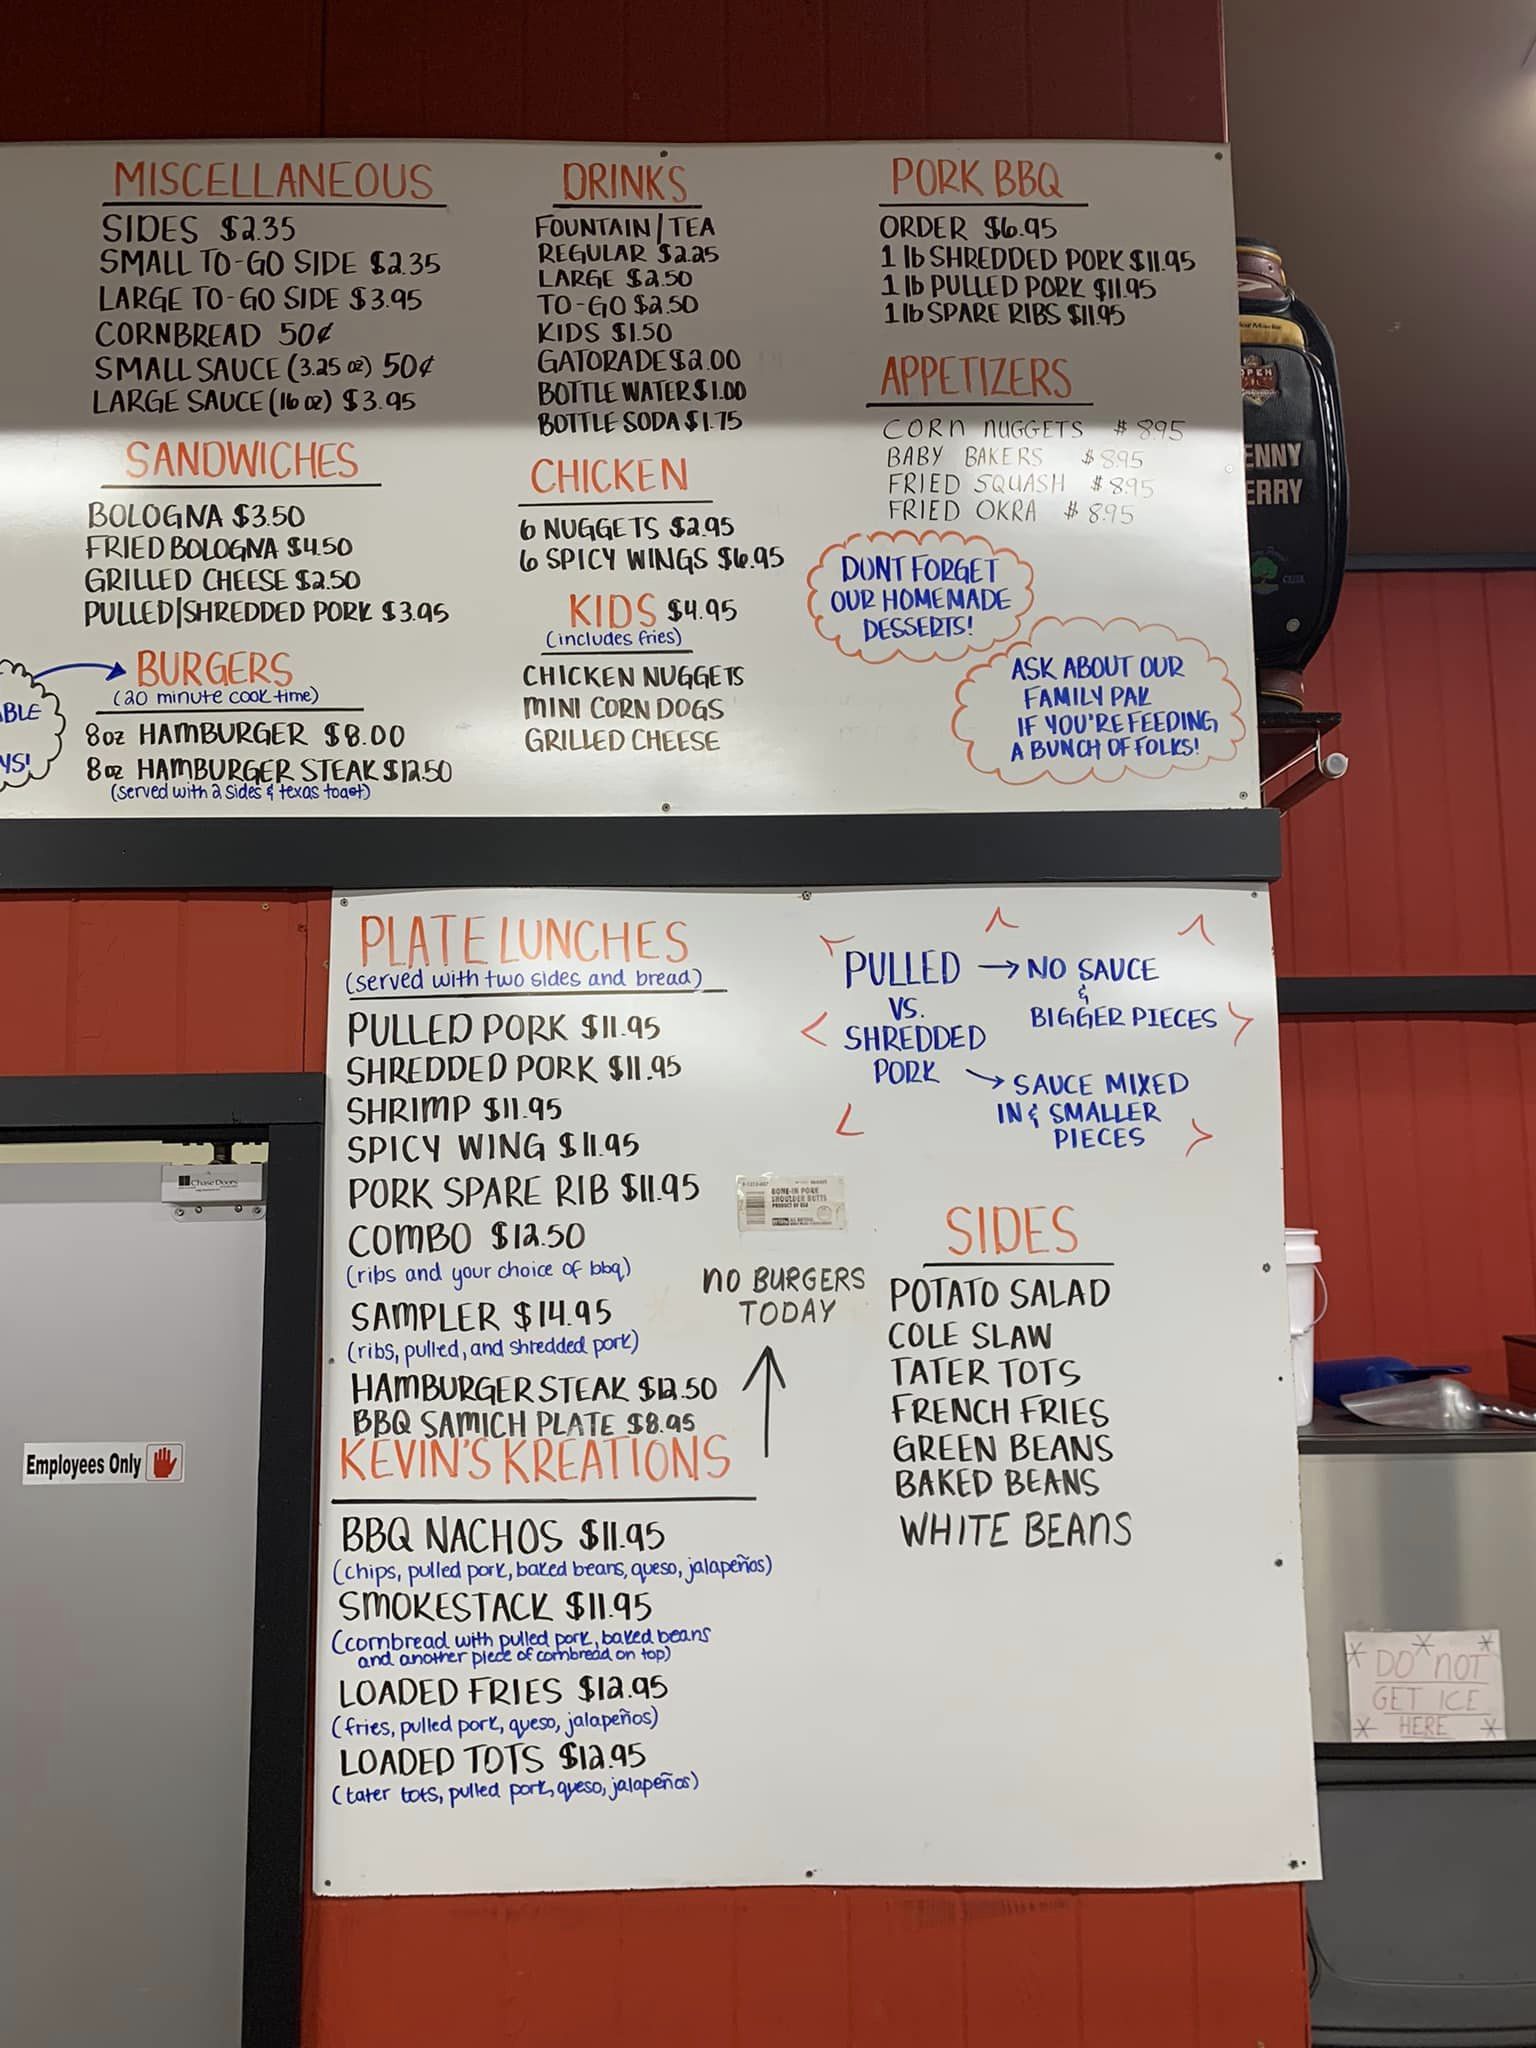 MISCELLANEOUS
SIDES $2.35
SMALL TO-GO SIDE $2.35
LARGE TO-GO SIDE $3.95
CORNBREAD 50¢
SMALL SAUCE (3.25 oz) 50¢
LARGE SAUCE (16 oz) $3.95
SANDWICHES
BOLOGNA $3.50
FRIED BOLOGNA $4.50
GRILLED CHEESE $2.50
PULLED/SHREDDED PORK $3.95
BURGERS
(20 minute cook time)
8oz HAMBURGER $8.00
8oz HAMBURGER STEAK $12.50
(served with 2 sides & texas toast)
DRINKS
FOUNTAIN/TEA
REGULAR $2.25
LARGE $2.50
TO-GO $2.50
KIDS $1.50
GATORADE $2.00
BOTTLE WATER $1.00
BOTTLE SODA $1.75
CHICKEN
6 NUGGETS $2.95
6 SPICY WINGS $6.95
KIDS $4.95
(includes fries)
CHICKEN NUGGETS
MINI CORN DOGS
GRILLED CHEESE
PORK BBQ
ORDER $6.95
1 lb SHREDDED PORK $11.95
1 lb PULLED PORK $11.95
1 lb SPARE RIBS $11.95
APPETIZERS
CORN NUGGETS $8.95
BABY BAKERS $8.95
FRIED SQUASH $8.95
FRIED OKRA $8.95
DONT FORGET
OUR HOMEMADE
DESSERTS!
ASK ABOUT OUR
FAMILY PAK
IF YOU'RE FEEDING
A BUNCH OF FOLKS!
ENNY
ERRY
PLATE LUNCHES
(served with two sides and bread)
PULLED PORK $11.95
SHREDDED PORK $11.95
SHRIMP $11.95
SPICY WING $11.95
PORK SPARE RIB $11.95
COMBO $12.50
(ribs and your choice of bbq)
SAMPLER $14.95
(ribs, pulled, and shredded pork)
HAMBURGER STEAK $12.50
BBQ SAMICH PLATE $8.95
KEVIN'S KREATIONS
BBQ NACHOS $11.95
(chips, pulled pork, baked beans, queso, jalapeños)
SMOKESTACK $11.95
(cornbread with pulled pork, baked beans
and another piece of cornbread on top)
LOADED FRIES $12.95
(fries, pulled pork, queso, jalapeños)
LOADED TOTS $12.95
(tater tots, pulled pork, queso, jalapeños)
PULLED → NO SAUCE
&
BIGGER PIECES
VS.
SHREDDED
PORK → SAUCE MIXED
IN & SMALLER
PIECES
BONE-IN PORK
SHOULDER BUTTS
PRODUCT OF USA
NO BURGERS
TODAY
SIDES
POTATO SALAD
COLE SLAW
TATER TOTS
FRENCH FRIES
GREEN BEANS
BAKED BEANS
WHITE BEANS
Chase Doors
Employees Only
DO NOT
GET ICE
HERE